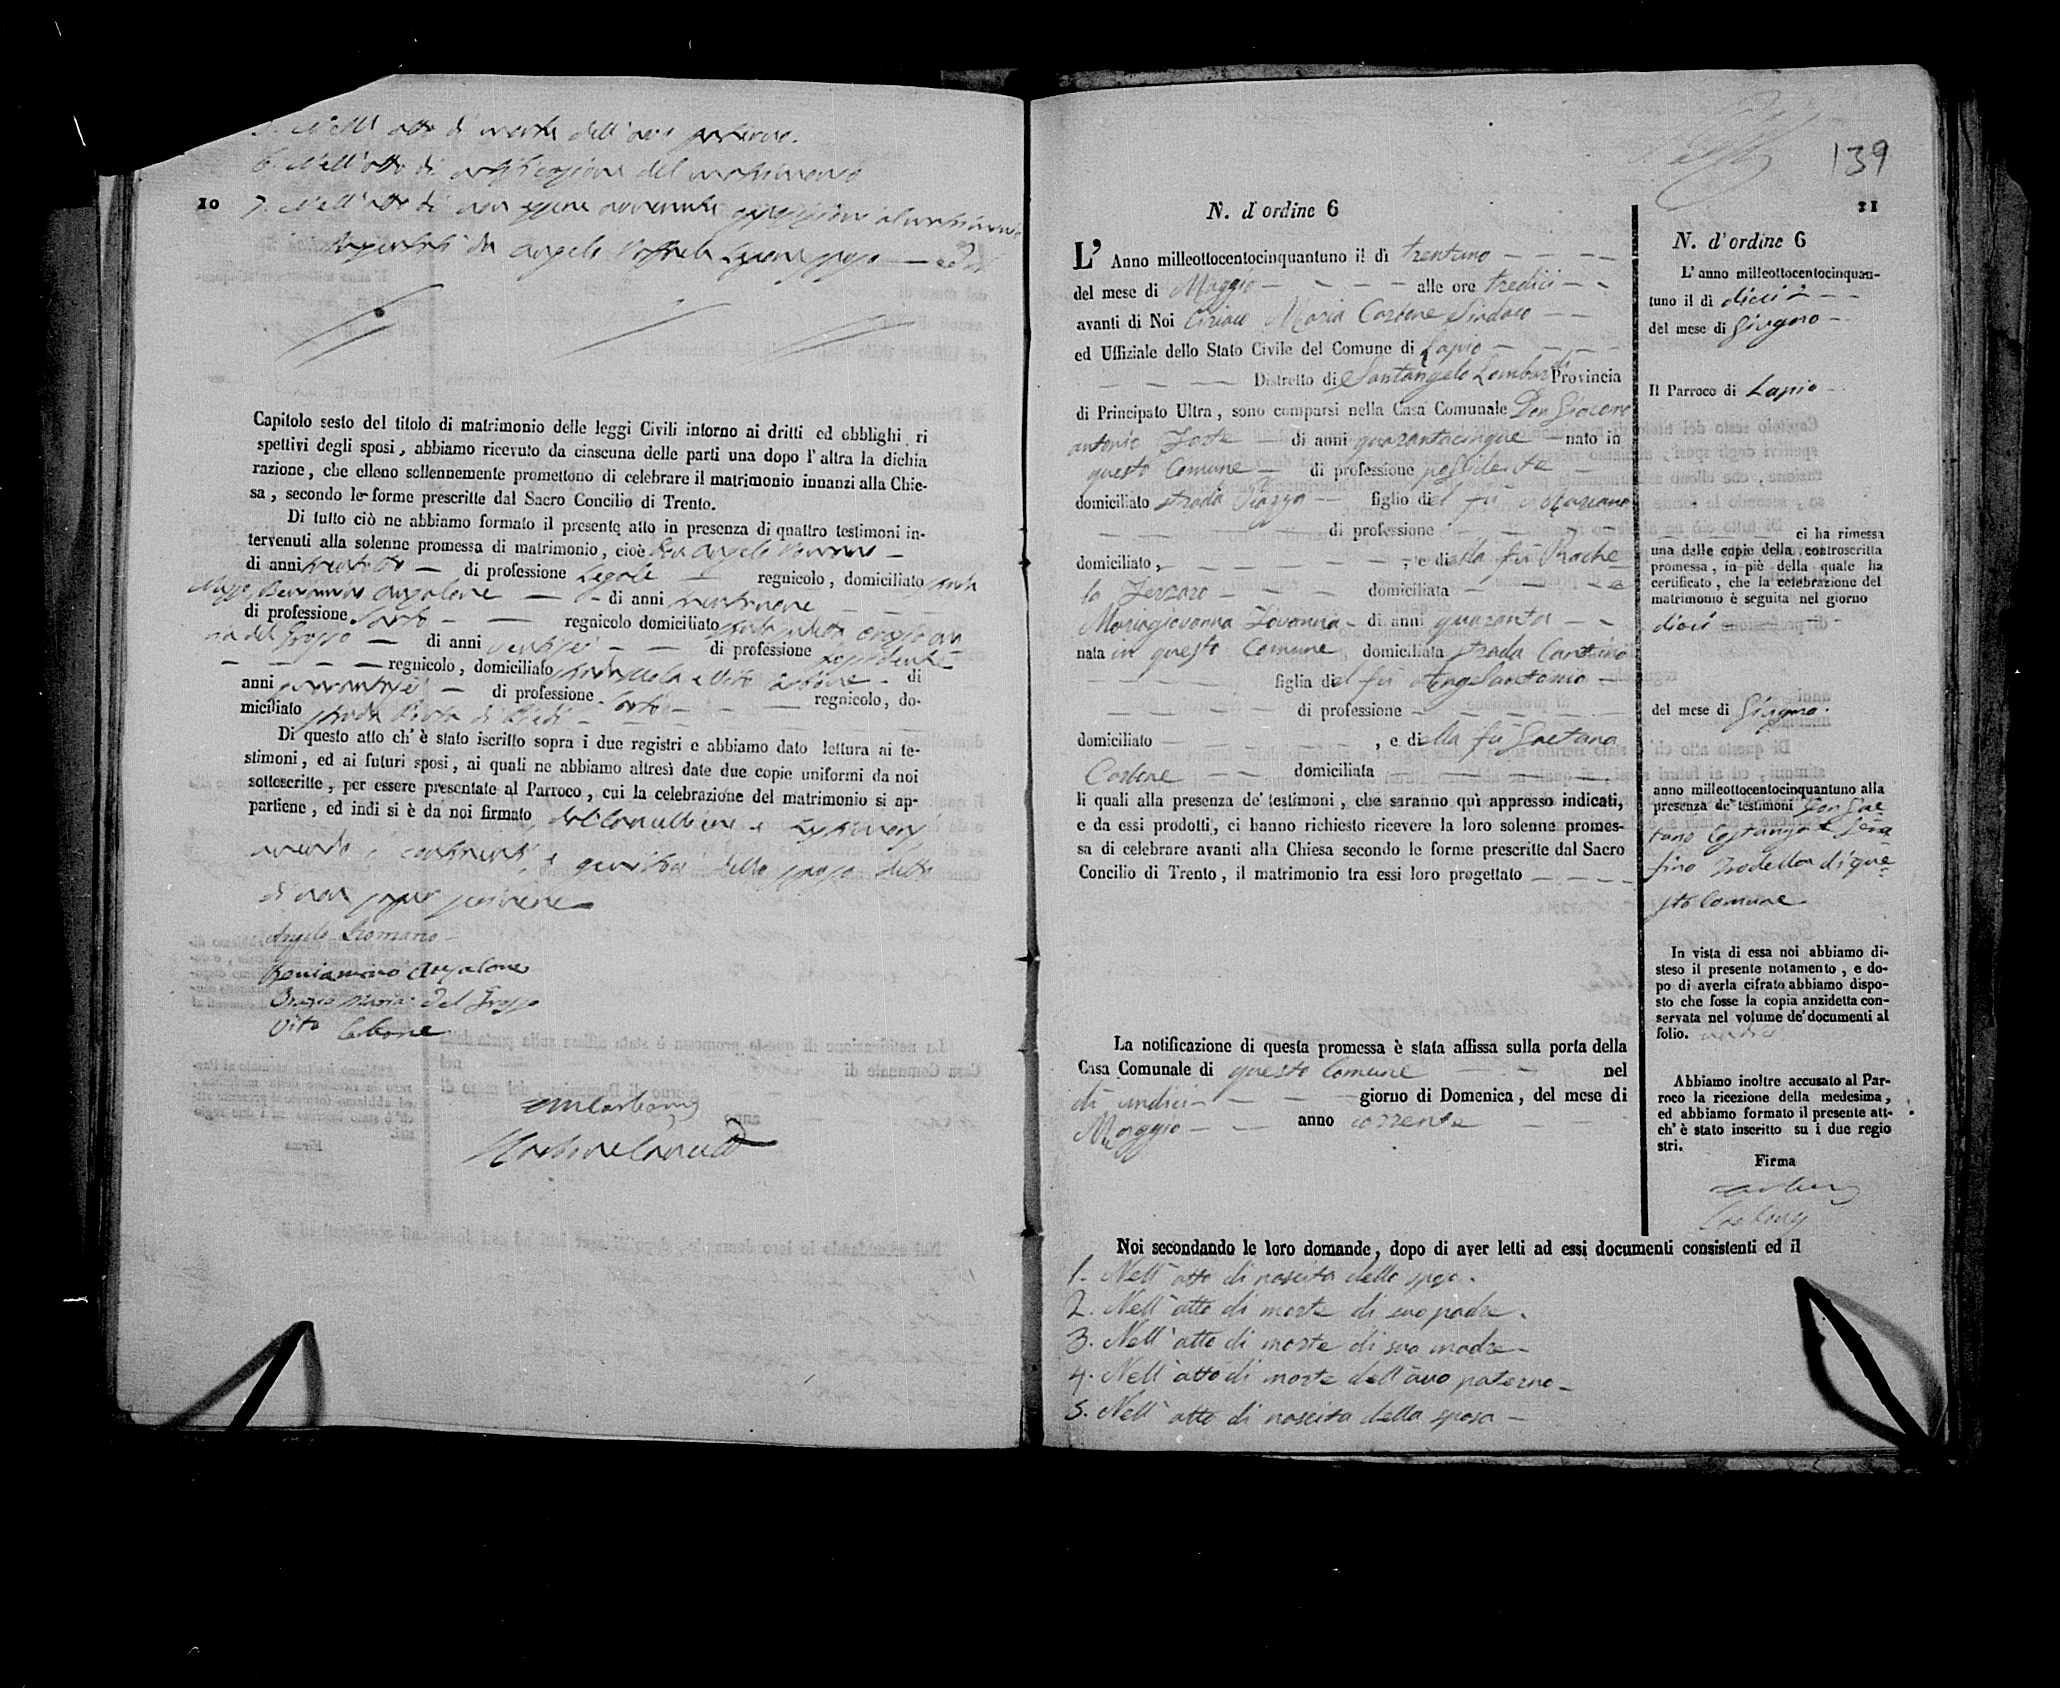 Nell' atto di morte dell' avo paterno.
6. Nell' atto di notificazione del matrimonio
10
7. Nell' atto di non essere avvenuta opposizione al matrimonio
da Angelo
Capitolo sesto del titolo di matrimonio delle leggi Civili intorno ai dritti ed obblighi ri
spettivi degli sposi, abbiamo ricevuto da ciascuna delle parti una dopo l' altra la dichia
razione, che elleno sollennemente promettono di celebrare il matrimonio innanzi alla Chie-
sa, secondo le forme prescritte dal Sacro Concilio di Trento.
Di tutto ciò ne abbiamo formato il presente atto in presenza di quattro testimoni in-
tervenuti alla solenne promessa di matrimonio, cioè Don Angelo Romano
di anni trentotto di professione Legale regnicolo, domiciliato strada
Beniamino Anzalone di anni trentanove
di professione Sarto regnicolo domiciliato strada
ria del Grosso di anni ventisei di professione possidente
regnicolo, domiciliato strada e Vito Carbone di
anni di professione Sarto regnicolo, do-
miciliato strada Porta di
Di questo atto ch' è stato iscritto sopra i due registri e abbiamo dato lettura ai te-
stimoni, ed ai futuri sposi, ai quali ne abbiamo altresì date due copie uniformi da noi
sottoscritte, per essere presentate al Parroco, cui la celebrazione del matrimonio si ap-
partiene, ed indi si è da noi firmato, dal Cancelliere e testimonj
avendo i contraenti, e genitori dello sposo detto
di non saper scrivere
Angelo Romano
Beniamino Anzalone
Orazio Maria del Grosso
Vito Carbone
139
11
N. d'ordine 6
L' Anno milleottocentocinquantuno il dì trentuno
del mese di Maggio alle ore tredici
avanti di Noi Ciriaco Maria Carbone Sindaco
ed Uffiziale dello Stato Civile del Comune di Lapio
Distretto di Santangelo Lombardi Provincia
di Principato Ultra, sono comparsi nella Casa Comunale Don Giacom
antonio Forte di anni quarantacinque nato in
questo Comune di professione possidente
domiciliato strada Piazza figlio del fu Mariano
di professione
domiciliato, e di della fu Rache
la Ferraro domiciliata
Mariagiovanna Iovanna di anni quaranta
nata in questo Comune domiciliata strada Cantino
figlia di el fu Angelantonio
di professione
domiciliato, e di ella fu Gaetana
Carbone domiciliata
li quali alla presenza de' testimoni, che saranno quì appresso indicati,
e da essi prodotti, ci hanno richiesto ricevere la loro solenne promes-
sa di celebrare avanti alla Chiesa secondo le forme prescritte dal Sacro
Concilio di Trento, il matrimonio tra essi loro progettato
La notificazione di questa promessa è stata affissa sulla porta della
Casa Comunale di questo Comune nel
dì undici giorno di Domenica, del mese di
Maggio anno corrente
Noi secondando le loro domande, dopo di aver letti ad essi documenti consistenti ed il
1. Nell' atto di nascita dello sposo.
2. Nell' atto di morte di suo padre.
3. Nell' atto di morte di sua madre
4. Nell' atto di morte dell' avo paterno
5. Nell' atto di nascita della sposa
N. d'ordine 6
L' anno milleottocentocinquan-
tuno il dì dieci
del mese di Giugno
Il Parroco di Lapio
ci ha rimessa
una delle copie della controscritta
promessa, in piè della quale ha
certificato, che la celebrazione del
matrimonio è seguita nel giorno
dieci
del mese di Giugno.
anno milleottocentocinquantuno alla
presenza de' testimoni Don Gae-
tano Costanzo e Sera
fino Trodella di que
sto Comune
In vista di essa noi abbiamo di-
steso il presente notamento, e do-
po di averla cifrato abbiamo dispo-
sto che fosse la copia anzidetta con-
servata nel volume de' documenti al
folio.
Abbiamo inoltre accusato al Par-
roco la ricezione della medesima,
ed abbiamo formato il presente att-
ch' è stato inscritto su i due regio
stri.
Firma